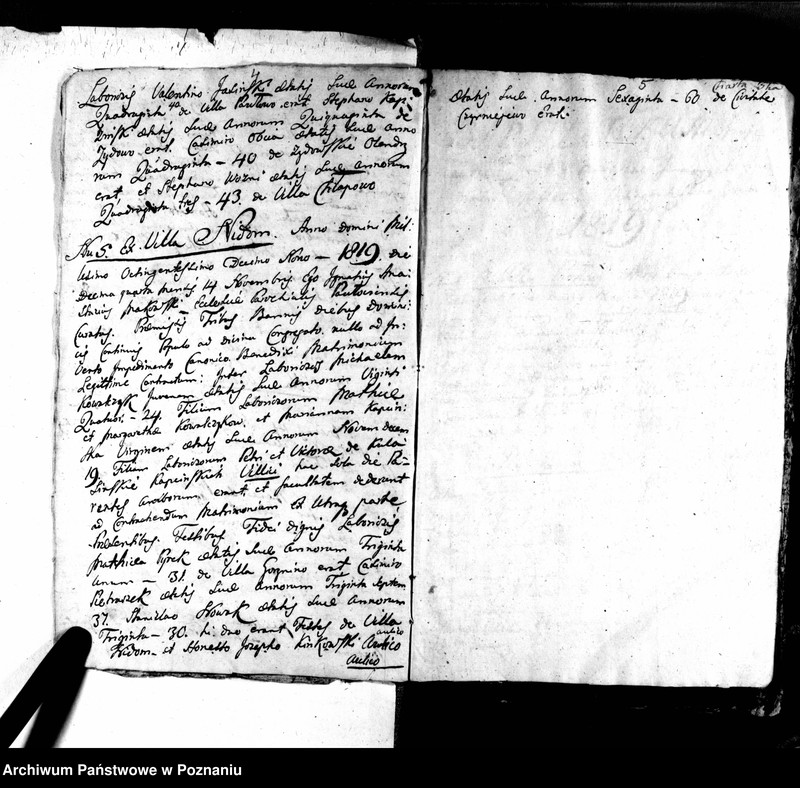 Laboriosis Valentino Jasińsk ætatis Suæ Annorum
Quadraginta de Villa Pawłowo erat Stephano Kap:
ætatis Suæ Annorum Quinquaginta de
Żydowo erat. Casimiro ætatis Suæ Anno
rum Quadraginta – 40 de
erat, et Stephano Wozni ætatis Suæ Annorum
Quadraginta tres – 43. de Villa Chłapowo
Nus 5. Ex Villa Nidom. Anno domini Mil:
lesimo Octingentesimo Decimo Nono – 1819. die
Decima quarta mensis 14 Novembris Ego Ignatius Ana:
stasius Makowski Ecclesiæ Parochialis
Curatus. Præmissis Tribus Bannis diebus Domini:
cis Continuis Populo ad divina Congregato. nullo ad In:
vento Impedimento Canonico. Benedixi Matrimonium
Legitime Contractum: Inter Laboriosos Michaelem
Kowalczyk Juvenem ætatis Suæ Annorum Viginti
Quatuor – 24. Filium Laboriosorum Mathiæ
et Margarethæ Kowalczykow. et Mariannam Kapcin:
ska Virginem ætatis Suæ Annorum Novem decem
19. Filiam Laboriosorum Petri et Victoriæ de
Kapcinskich Villici hac sola die Pa:
rentes amborum erant, et facultatem dederunt
ad Contrahendum Matrimonium Ex Utraq parte
Præsentibus. Testibus Fidei dignis Laboriosis
Mathia Pyrek ætatis Suæ Annorum Triginta
unum – 31. de Villa Gorzuino erat Casimiro
Pietraszek ætatis Suæ Annorum Triginta Septem
37. Stanislao Nowak ætatis Suæ Annorum
Triginta – 30. hi duo erant Testes de Villa
Nidom – et Honesto Josepho Kinkowski Aulico
aulico
Aulico
5
Charta 5ta
ætatis Suæ Annorum Sexaginta – 60 de Civitate
Czerniejewo erat.
Archiwum Państwowe w Poznaniu